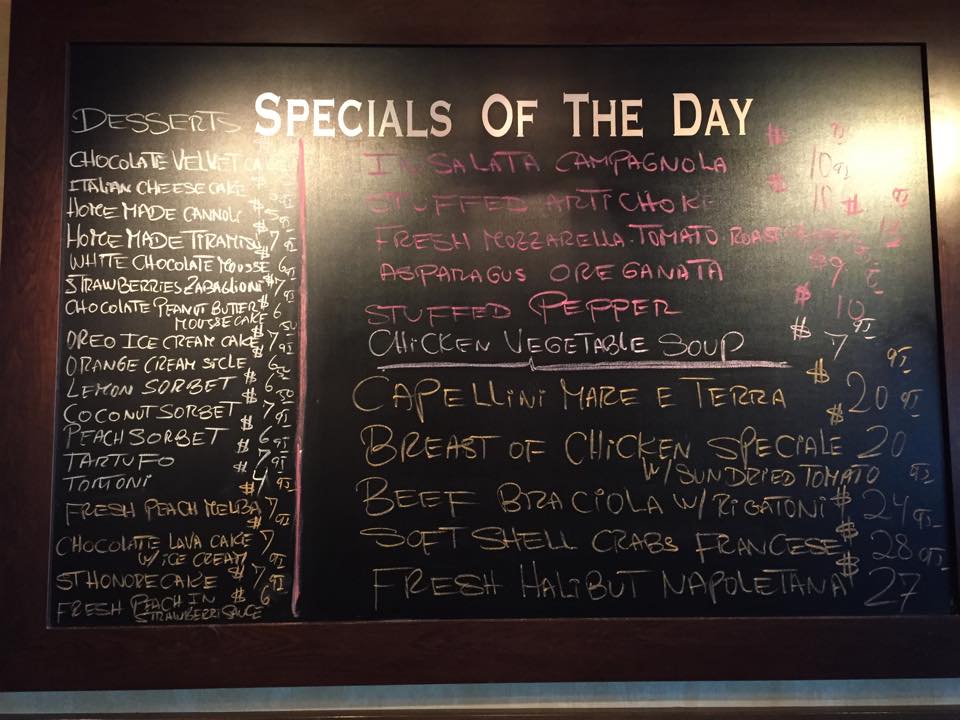 SPECIALS OF THE DAY
DESSERTS
CHOCOLATE VELVET
ITALIAN CHEESECAKE
HOME MADE CANNOLI $ 5
HOME MADE TIRAMISU 7 95
WHITE CHOCOLATE MOUSSE 6
STRAWBERRIES ZABAGLIONI $ 7
CHOCOLATE PEANUT BUTTER $ 6
MOUSSE CAKE
OREO ICE CREAM CAKE 7 95
ORANGE CREAM SICLE $ 6 50
LEMON SORBET $ 6 50
COCONUT SORBET $ 7 95
PEACH SORBET $ 6 95
TARTUFO $ 7 95
TORTONI $ 4 95
FRESH PEACH MELBA 7 95
CHOCOLATTE LAVA CAKE $ 7
W/ICE CREAM 95
ST HONORE CAKE $ 7 95
FRESH PEACH IN $ 6
STRAWBERRI SAUCE
INSALATA CAMPAGNOLA $ 10 95
STUFFED ARTICHOKE $ 10
FRESH MOZZARELLA.TOMATO ROAST $
ASPARAGUS OREGANATA $ 9
STUFFED PEPPER $ 10
CHICKEN VEGETABLE SOUP $ 7 95
CAPELLINI MARE E TERRA $ 20 95
BREAST OF CHICKEN SPECIALE $ 20 95
W/SUNDRIED TOMATO
BEEF BRACIOLA W/RIGATONI $ 24 95
SOFT SHELL CRABS FRANCESE $ 28 95
FRESH HALIBUT NAPOLETANA $ 27 95